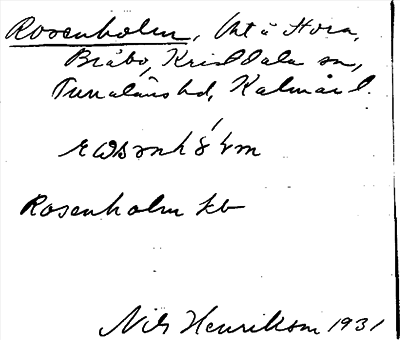 Rosenholm, Utä Stora
Bråbo, Kristdala sn,
Tunaläns hd, Kalmar l.
Rosenholm kb
Nils Henrikson 1931